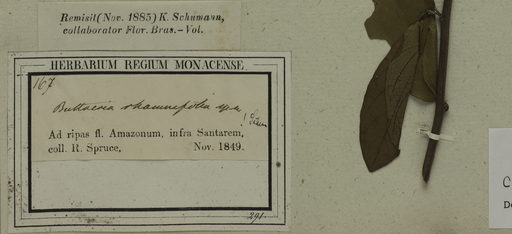 Remisit (Nov. 1885) K. Schumann,
collaborator Flor. Bras. – Vol.
HERBARIUM REGIUM MONACENSE.
167
Buttneria rhamnifolia
Ad ripas fl. Amazonum, infra Santarem,
coll. R. Spruce, Nov. 1849.
291